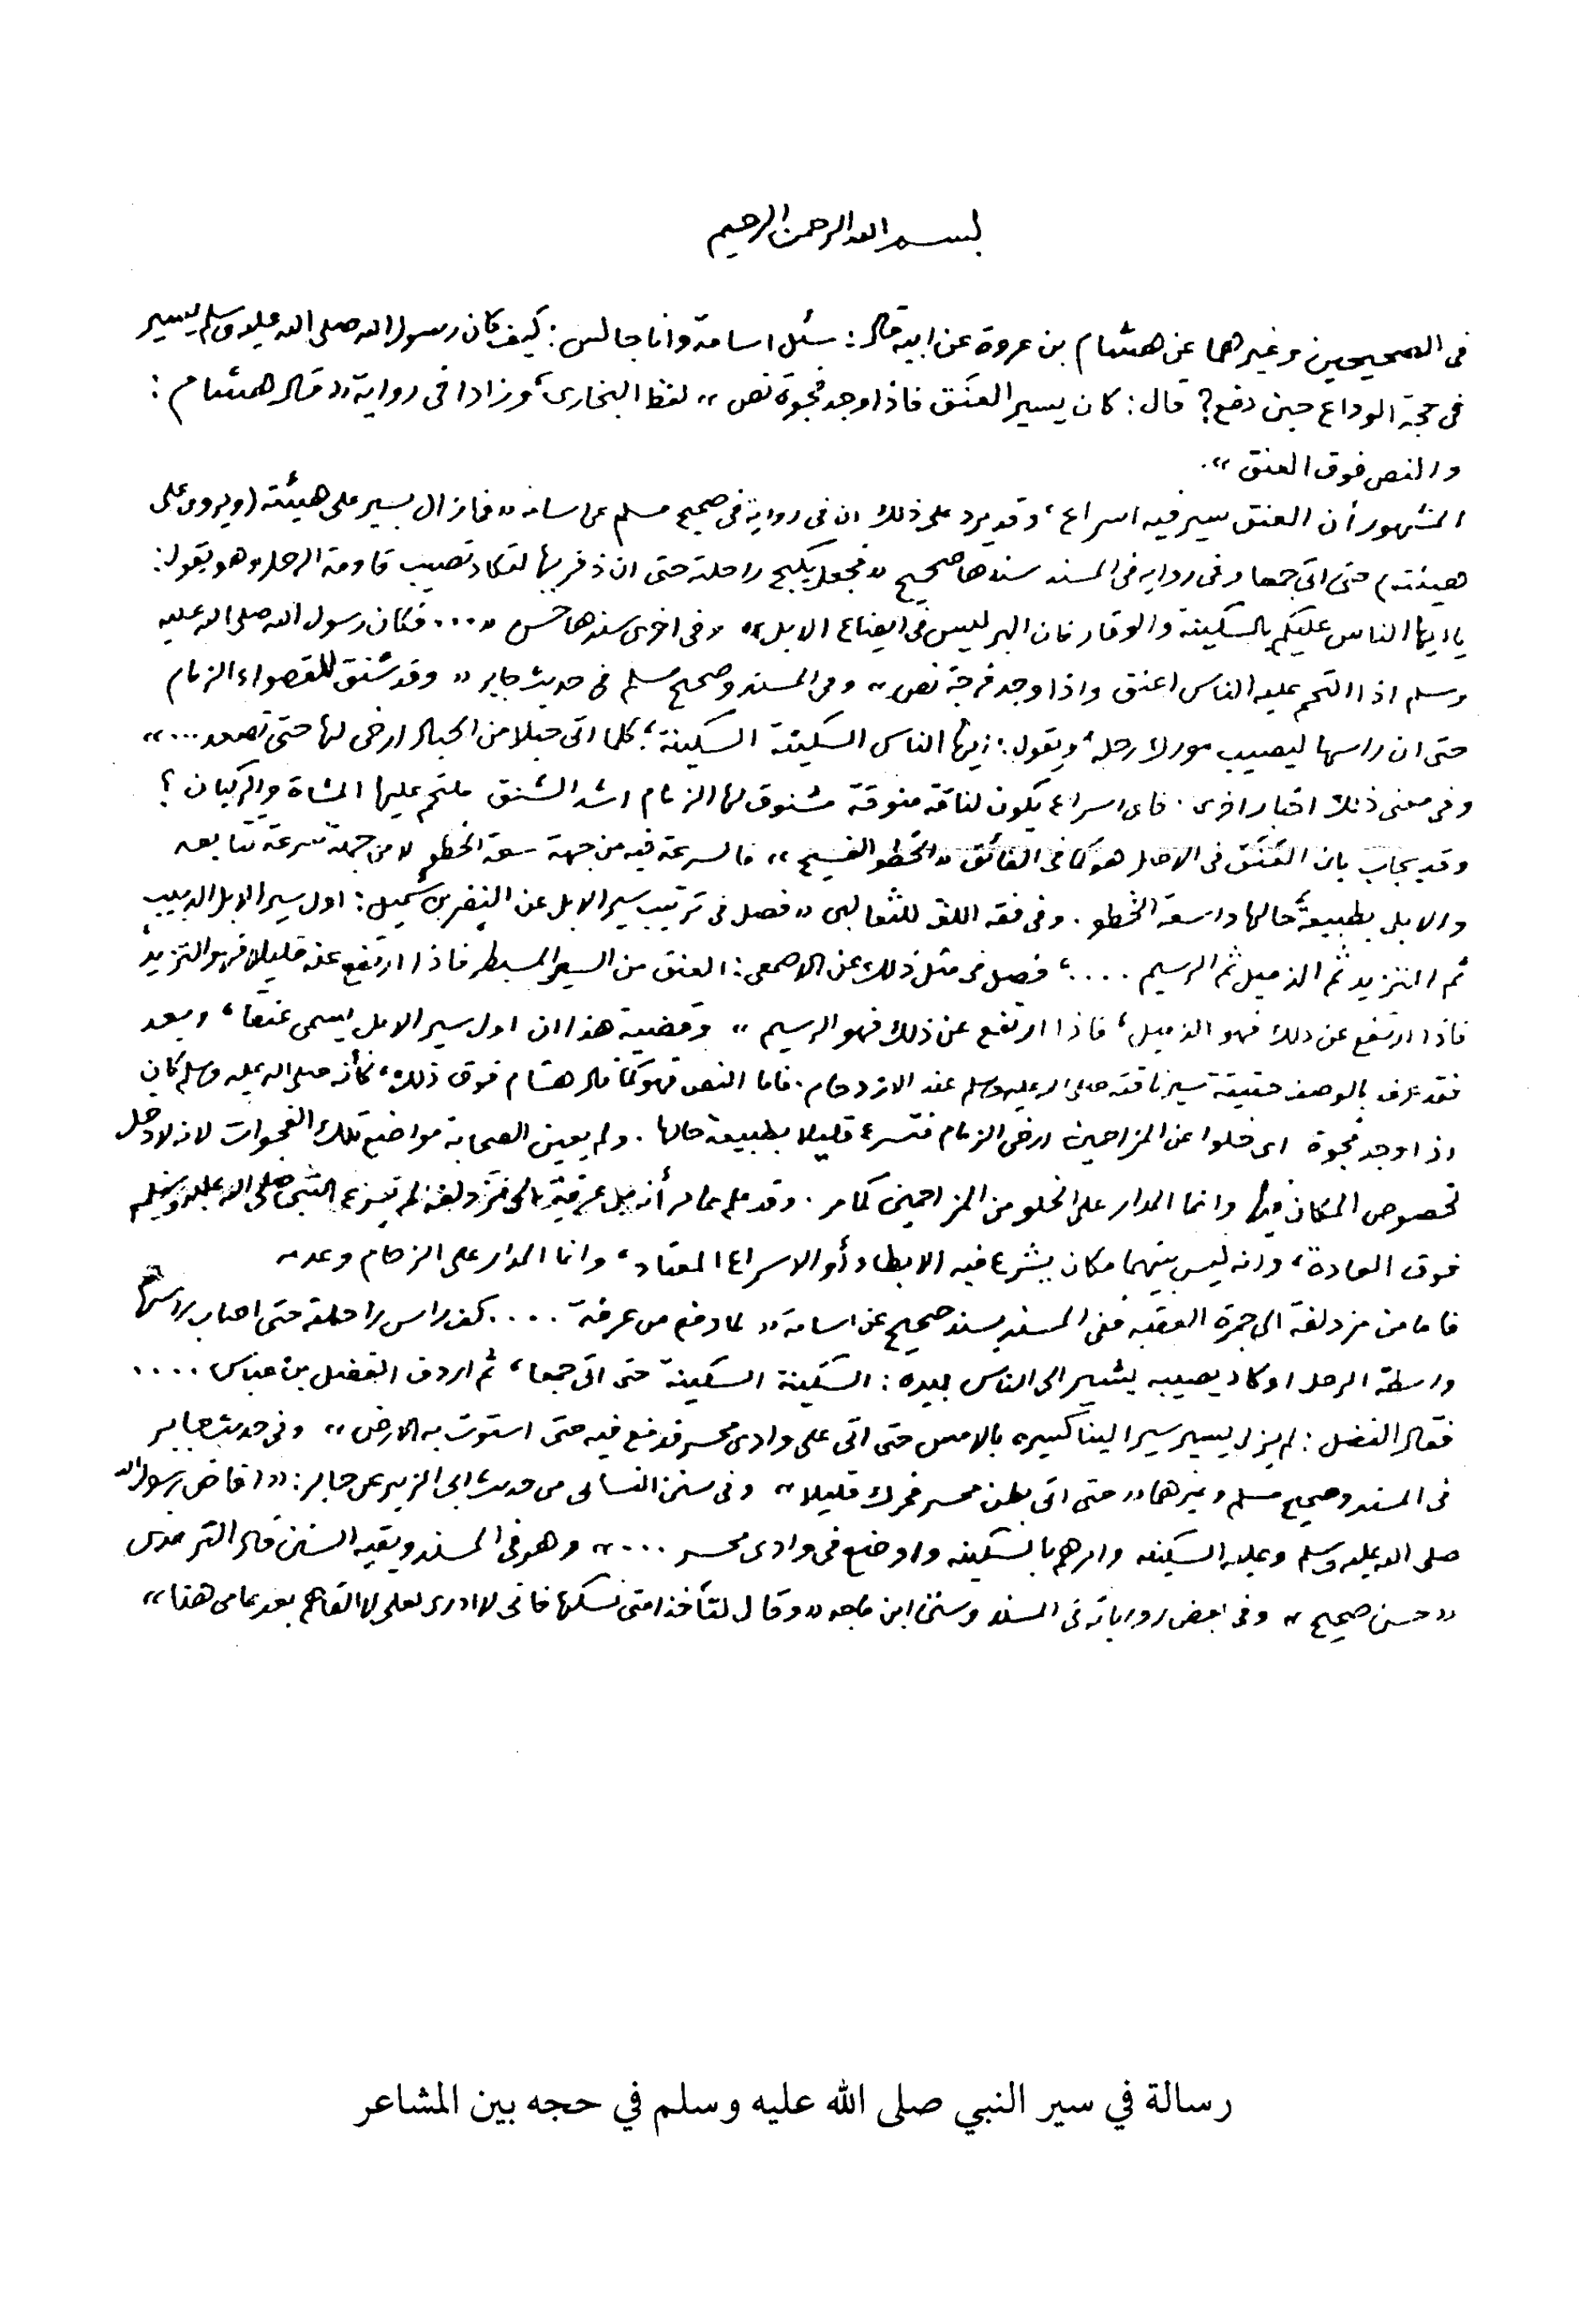 بسم الله الرحمن الرحيم
في الصحيحين وغيرهما عن هشام بن عروة عن ابيه قال: سئل اسامة وانا جالس: كيف كان رسول الله صلى الله عليه وسلم يسير
في حجة الوداع حين دفع؟ قال: كان يسير العنق فاذا وجد فجوة نص» لفظ البخاري، وزادا في رواية «قال هشام:
والنص فوق العنق».
المشهور أن العنق سير فيه اسراع، وقد يرد على ذلك ان في رواية في صحيح مسلم عن اسامة «فما زال يسير على هيئته (ويروى على
هينته) حتى اتى جمعا وفي رواية في المسند سندها صحيح «فجعل يكبح راحلته حتى ان ذفريها لتكاد تصيب قادمة الرحل وهو يقول:
يا ايها الناس عليكم بالسكينة والوقار فان البر ليس في ايضاع الابل» وفي اخرى سندها حسن «... فكان رسول الله صلى الله عليه
وسلم اذا التحم عليه الناس اعنق واذا وجد فرجة نص» وفي المسند وصحيح مسلم في حديث جابر «وقد شنق للقصواء الزمام
حتى ان راسها ليصيب مورك رحله، ويقول: ايها الناس السكينة السكينة، كلما اتى حبلا من الحبال ارخى لها حتى تصعد ...»
وفي معنى ذلك اخبار اخرى. فاى اسراع يكون لناقة منوقة مشنوق لها الزمام اشد الشنق ملتحم عليها المشاة والركبان؟
وقد يجاب بان العنق في الاصل هو كما في الفائق «الخطو الفسيح» فالسرعة فيه من جهة سعة الخطو لا من جهة سرعة تتابعه
والابل بطبيعة حالها واسعة الخطو. وفي فقه اللغة للثعالبي «فصل في ترتيب سير الابل عن النضر بن شميل: اول سير الابل الدبيب
ثم التزيد ثم الذميل ثم الرسيم ....، فصل في مثل ذلك عن الاصمعي: العنق من السير المسبطر فاذا ارتفع عنه قليلا فهو التزيد
فاذا ارتفع عن ذلك فهو الذميل، فاذا ارتفع عن ذلك فهو الرسيم» وقضية هذا ان اول سير الابل يسمى عنقا، وبعد
فقد عرف بالوصف حقيقة سير ناقته صلى الله عليه وسلم عند الازدحام. فاما النص فهو كما قال هشام فوق ذلك، كأنه صلى الله عليه وسلم كان
اذا وجد فجوة اى خلوا عن المزاحمين ارخى الزمام فتسرع قليلا بطبيعة حالها. ولم يعين الصحابة مواضع تلك الفجوات لانه لا دخل
لخصوص المكان فيها وانما المدار على الخلو من المزاحمين كما مر. وقد علم مما مر أنه من عرفة الى مزدلفة لم يسرع النبي صلى الله عليه وسلم
فوق العادة، وانه ليس بينهما مكان يشرع فيه الابطاء أو الاسراع المعتاد، وانما المدار على الزحام وعدمه
فاما من مزدلفة الى جمرة العقبة ففي المسند بسند صحيح عن اسامة «لما دفع من عرفة .... كف راس راحلته حتى اصاب راسها
واسطة الرحل او كاد يصيبه يشير الى الناس بيده: السكينة السكينة حتى اتى جمعا، ثم اردف الفضل بن عباس ....
فقال الفضل: لم يزل يسير سيرا لينا كسيره بالامس حتى اتى على وادى محسر فدفع فيه حتى استوت به الارض» وفي حديث جابر
في المسند وصحيح مسلم وغيرهما «حتى اتى بطن محسر فحرك قليلا» وفي سنن النسائي من حديث ابي الزبير عن جابر: «افاض رسول الله
صلى الله عليه وسلم وعليه السكينة وامرهم بالسكينة واوضع في وادى محسر ...» وهو في المسند وبقية السنن قال الترمذى
«حسن صحيح» وفي بعض رواياته في المسند وسنن ابن ماجه «وقال لتأخذ امتى نسكها فاني لا ادرى لعلى لا القاهم بعد عامى هذا»
رسالة في سير النبي صلى الله عليه وسلم في حجه بين المشاعر